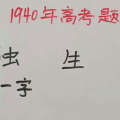 1940年高考题
虫 生
一字